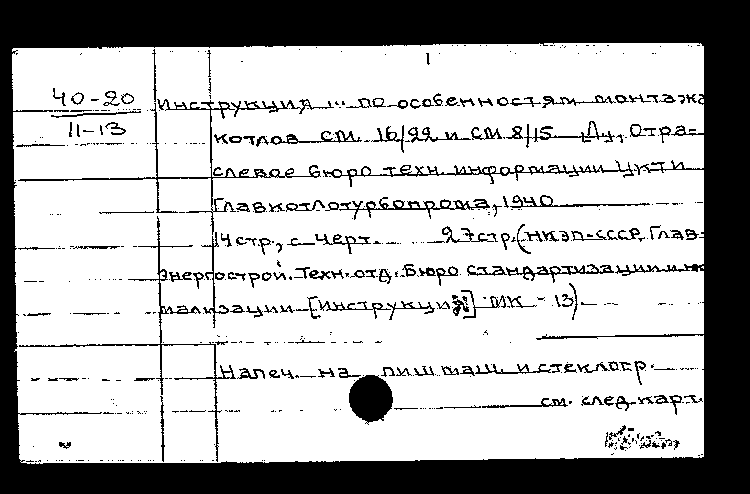 1
40-20 Инструкция ... по особенностям монтажа
11-13 котлов см. 16/22 и см 8/15. Отра-
слевое бюро техн. информации ЦКТИ
Главкотлотурбопрома, 1940
14 стр., с черт. 27 стр. (НКЭП-СССР. Глав-
энергострой. Техн. отд. Бюро стандартизации и
мализации [Инструкция] МК - 13).
Напеч. на пиш маш. и стеклогр.
см. след. карт.